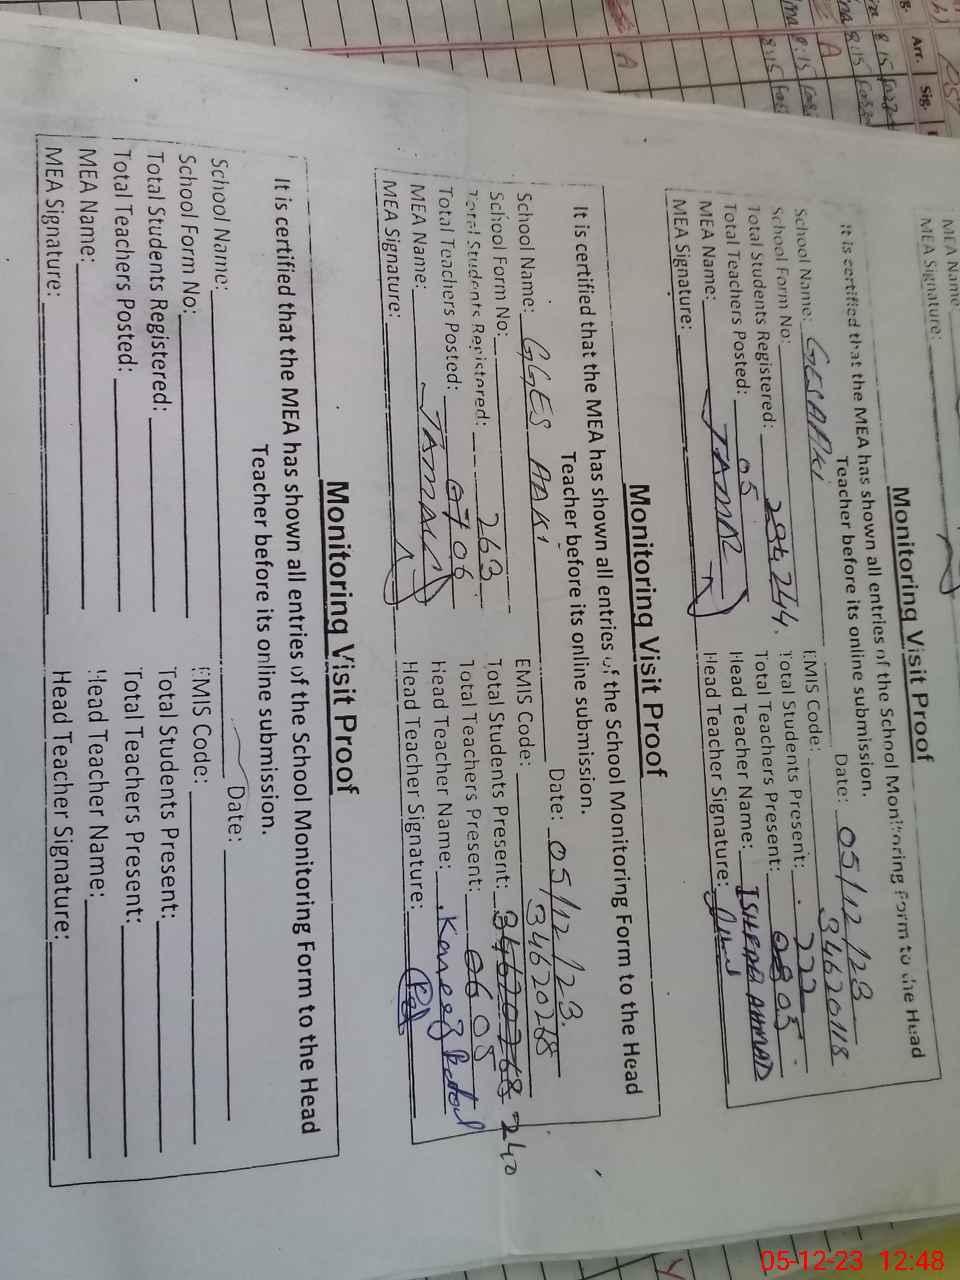 MEA Name:
MEA Signature:
Monitoring Visit Proof
It is certified that the MEA has shown all entries of the School Monitoring Form to the Head
Teacher before its online submission.
School Name: Date: 05/12/23
School Form No: EMIS Code: 34620118
Total Students Registered: 244 Total Students Present: 222
Total Teachers Posted: 05 Total Teachers Present: 05
MEA Name: Head Teacher Name: AHMAD
MEA Signature: Head Teacher Signature:
Monitoring Visit Proof
It is certified that the MEA has shown all entries of the School Monitoring Form to the Head
Teacher before its online submission.
School Name: GGES ADKI Date: 05/12/23
School Form No: EMIS Code: 34620268
Total Students Registered: 263 Total Students Present: 34620268 240
Total Teachers Posted: 07 06 Total Teachers Present: 06 05
MEA Name: Head Teacher Name:
MEA Signature: Head Teacher Signature:
Monitoring Visit Proof
It is certified that the MEA has shown all entries of the School Monitoring Form to the Head
Teacher before its online submission.
School Name: Date:
School Form No: EMIS Code:
Total Students Registered: Total Students Present:
Total Teachers Posted: Total Teachers Present:
MEA Name: Head Teacher Name:
MEA Signature: Head Teacher Signature:
Arr. Sig.
8:15
8:15
8:15
8:15
A
A
05-12-23 12:48